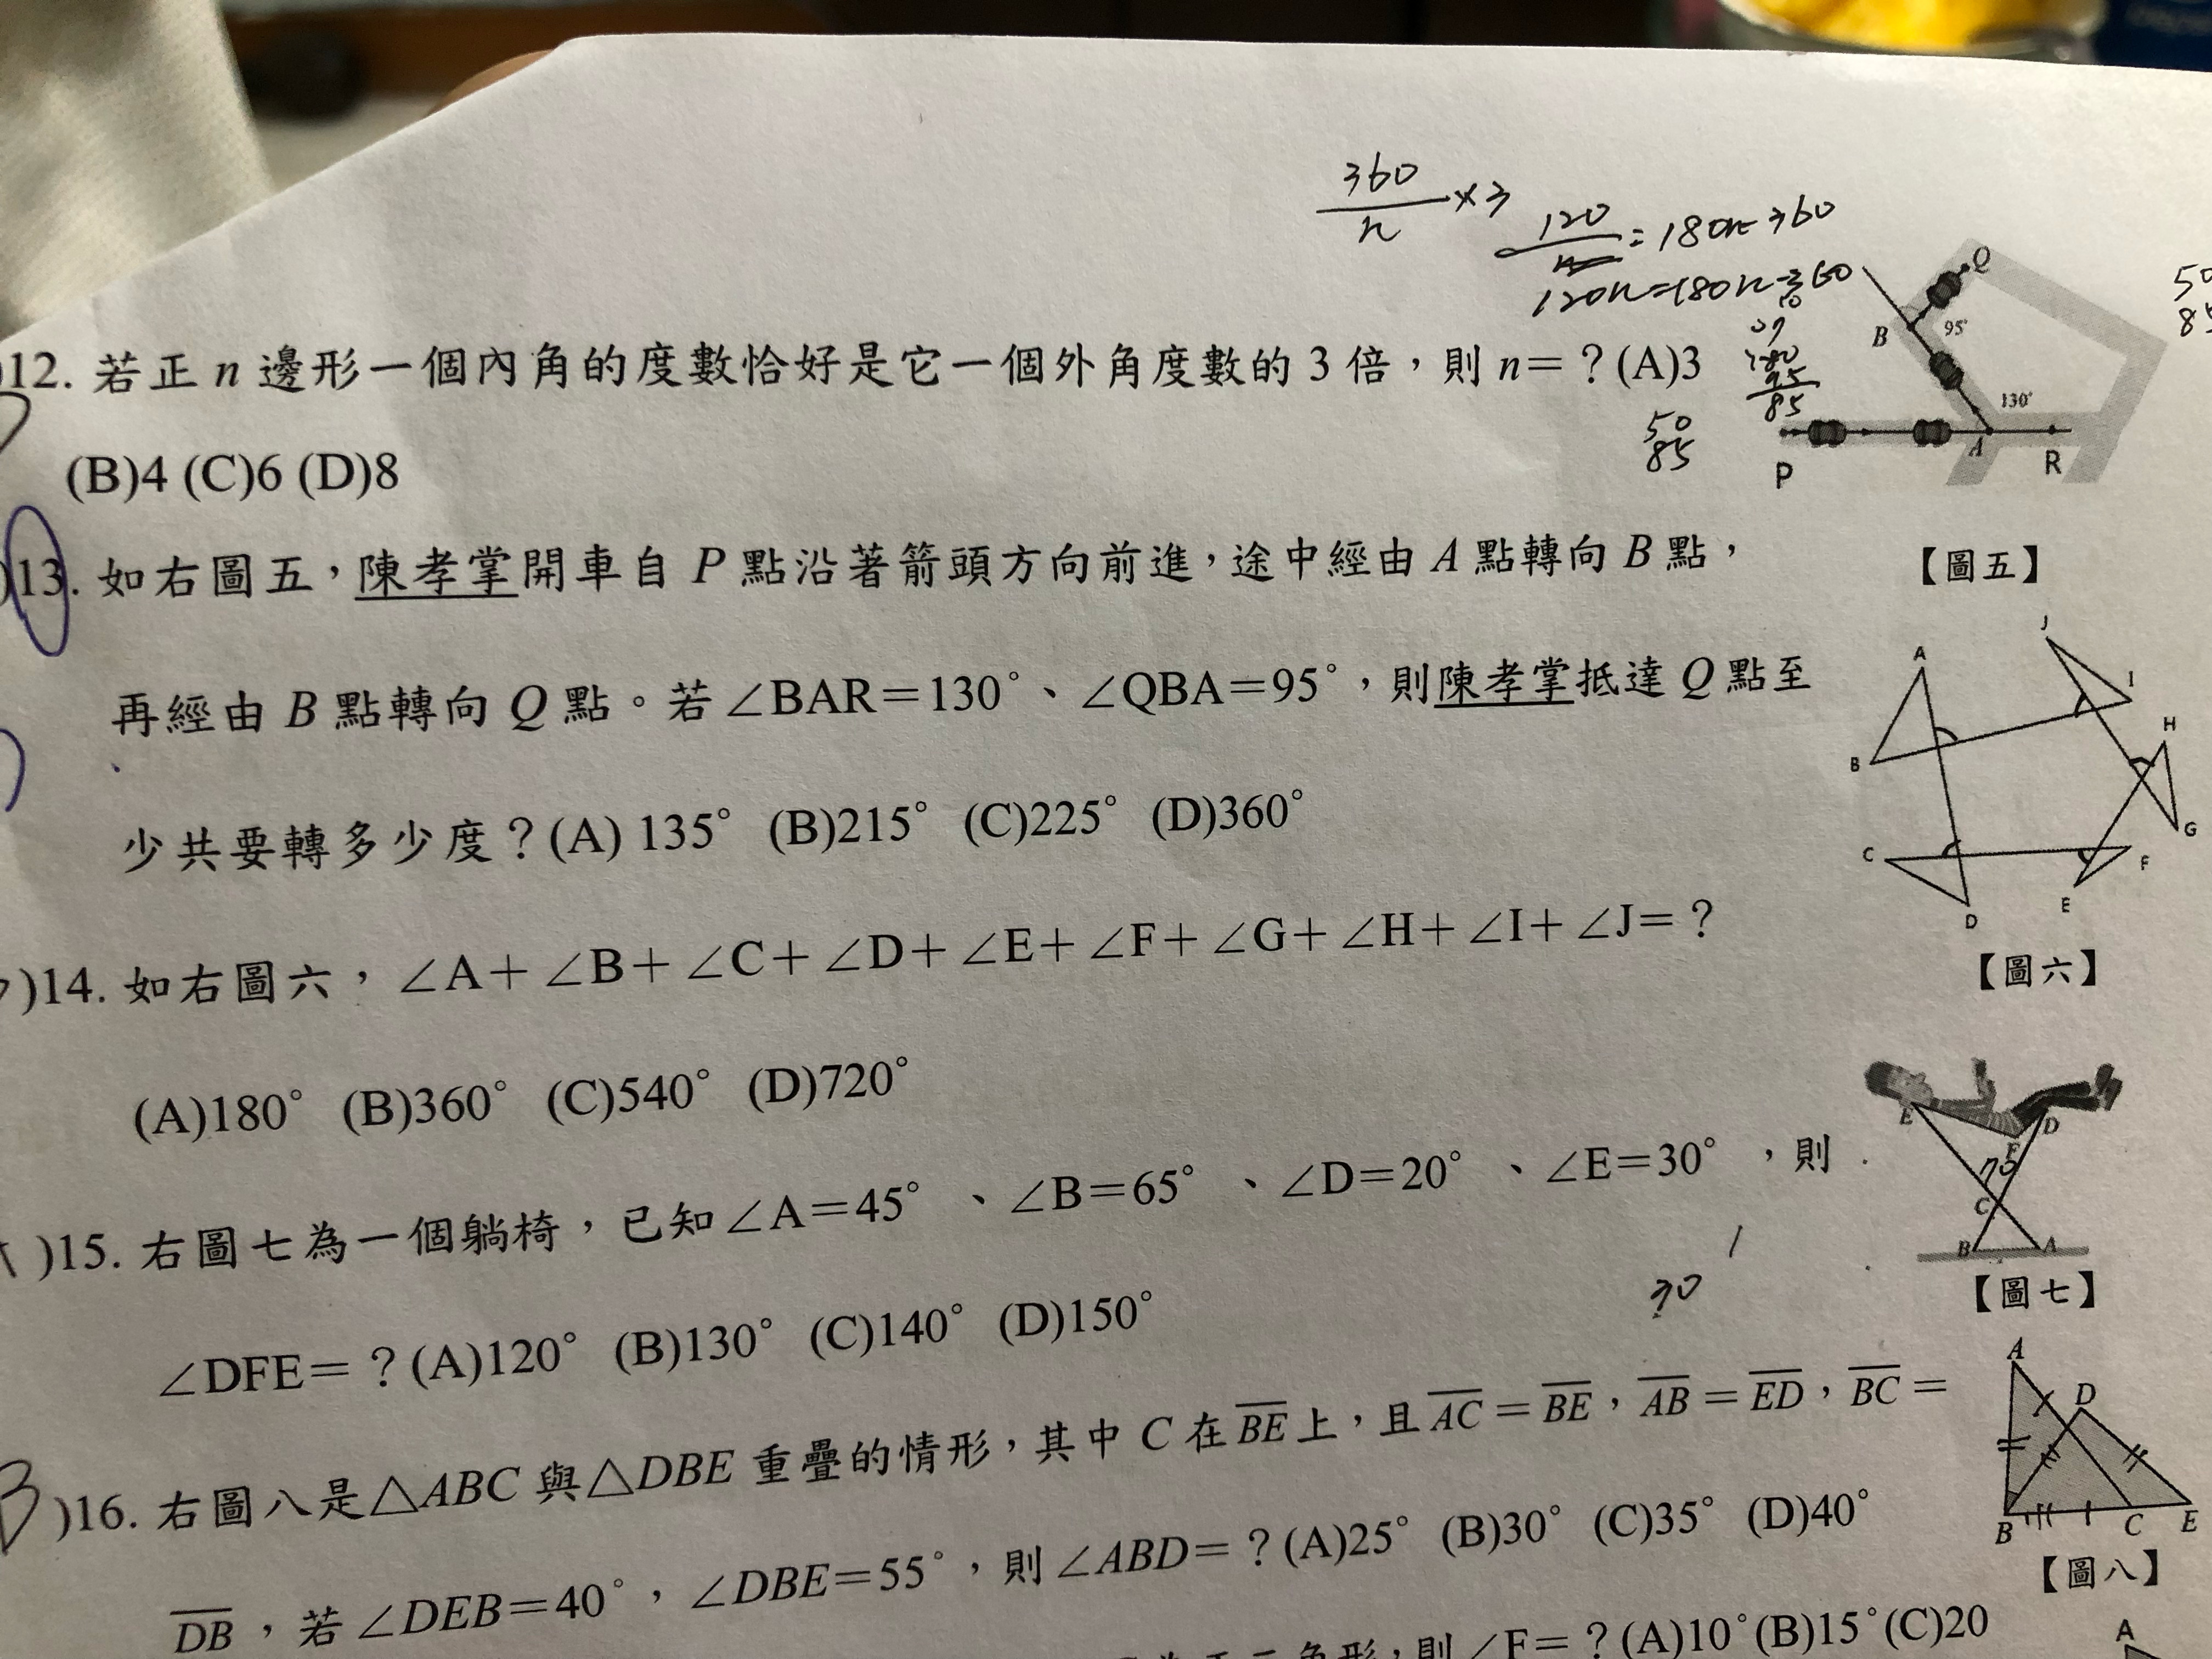 360/n ×3
120/n = 180n-360
120n=180n-360
12. 若正 n 邊形一個內角的度數恰好是它一個外角度數的 3 倍，則 n=？(A)3
(B)4 (C)6 (D)8
180
95
85
50
85
50
Q
B
95°
130°
P
A
R
【圖五】
13. 如右圖五，陳孝掌開車自 P 點沿著箭頭方向前進，途中經由 A 點轉向 B 點，
再經由 B 點轉向 Q 點。若∠BAR＝130°、∠QBA＝95°，則陳孝掌抵達 Q 點至
少共要轉多少度？(A) 135° (B)215° (C)225° (D)360°
J
A
I
H
B
G
C
F
E
D
【圖六】
)14. 如右圖六，∠A＋∠B＋∠C＋∠D＋∠E＋∠F＋∠G＋∠H＋∠I＋∠J＝？
(A)180° (B)360° (C)540° (D)720°
E
D
F
70
C
B
A
【圖七】
)15. 右圖七為一個躺椅，已知∠A＝45°、∠B＝65°、∠D＝20°、∠E＝30°，則
30
∠DFE＝？(A)120° (B)130° (C)140° (D)150°
A
D
B
C
E
【圖八】
B )16. 右圖八是△ABC 與△DBE 重疊的情形，其中 C 在BE上，且AC＝BE，AB＝ED，BC＝
DB，若∠DEB＝40°，∠DBE＝55°，則∠ABD＝？(A)25° (B)30° (C)35° (D)40°
三角形，則∠F＝？(A)10°(B)15°(C)20
A